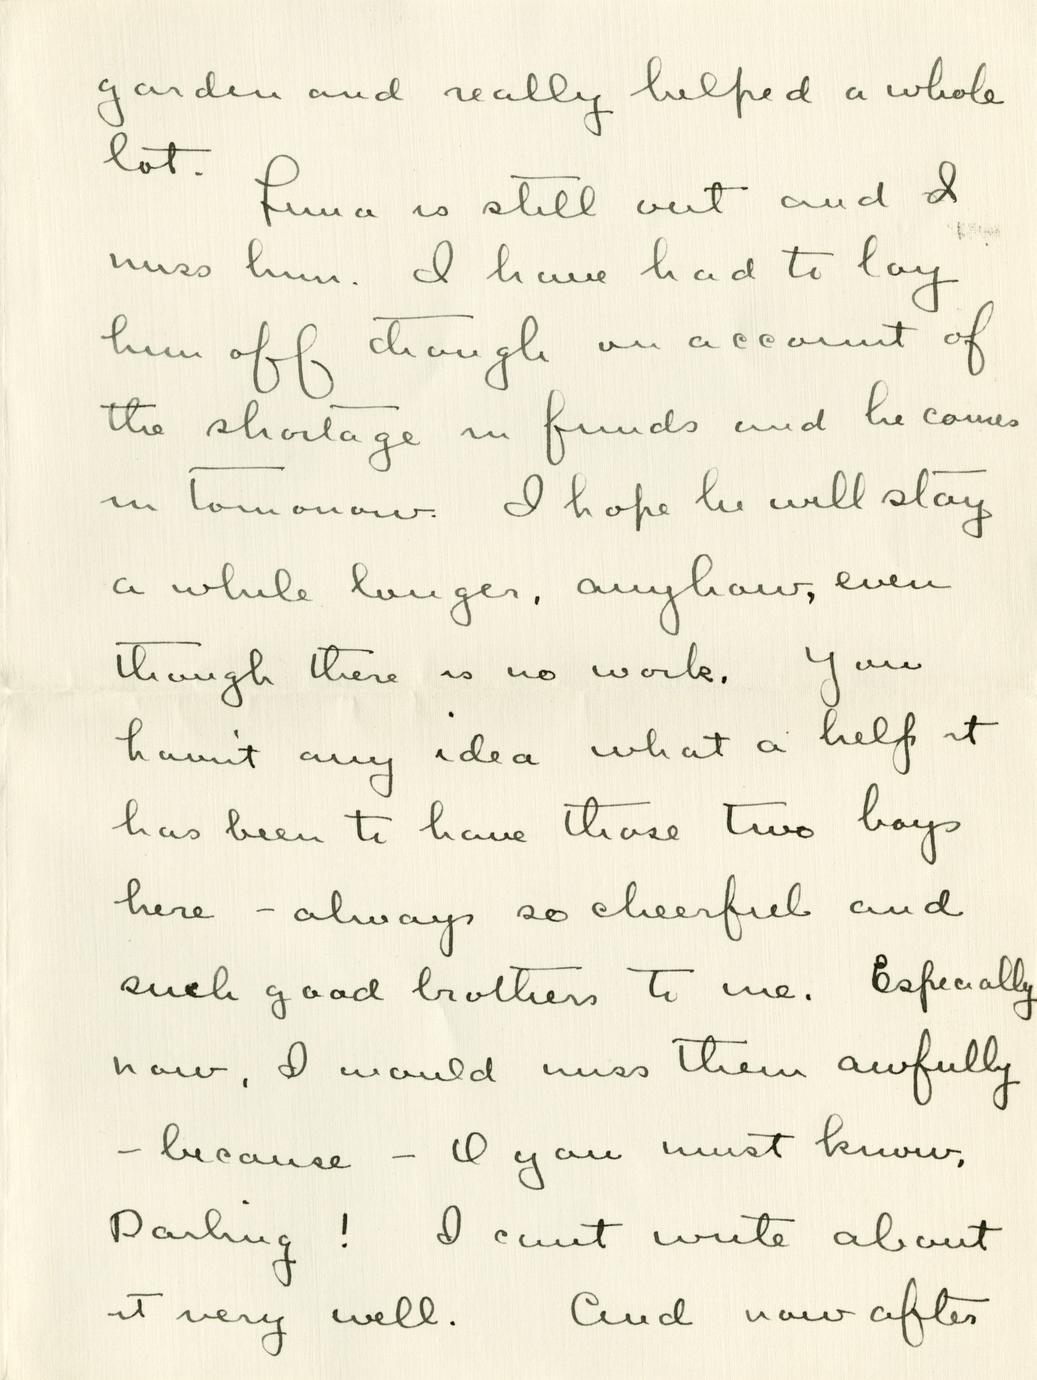 garden and really helped a whole
lot.
Luna is still out and I
miss him. I have had to lay
him off though on account of
the shortage in funds and he comes
in tomorrow. I hope he will stay
a while longer, anyhow, even
though there is no work. You
havn't any idea what a help it
has been to have those two boys
here - always so cheerful and
such good brothers to me. Especially
now, I would miss them awfully
- because - O you must know,
Darling! I can't write about
it very well. And now after